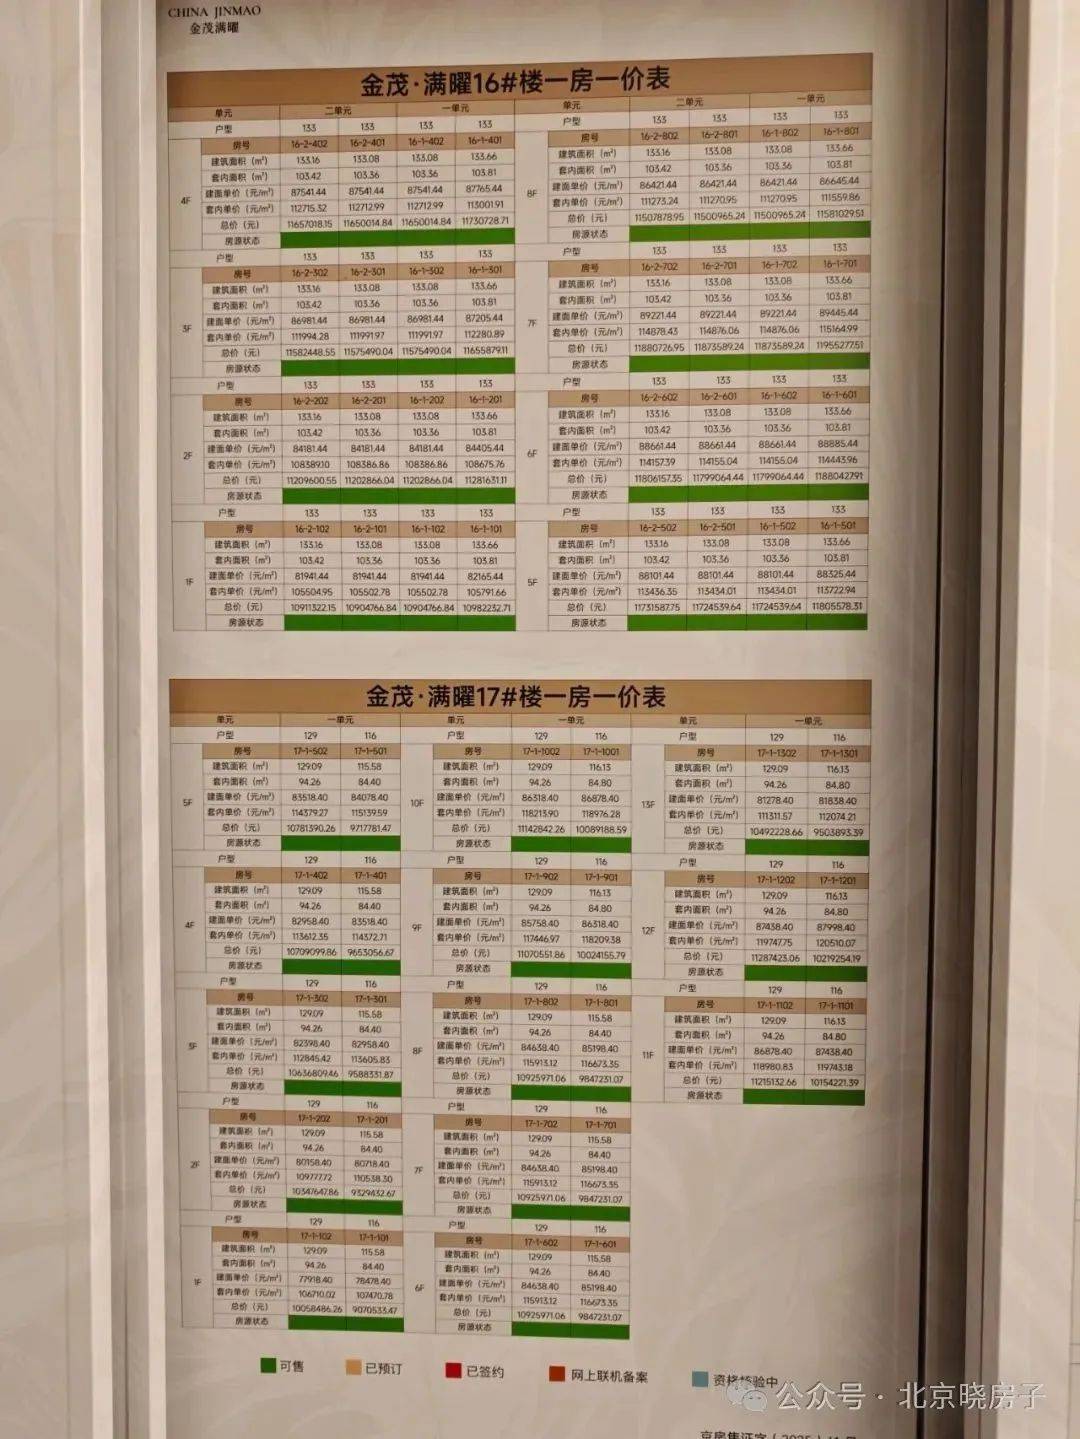 CHINA JINMAO
金茂满曜
金茂·满曜16#楼一房一价表
单元 二单元 一单元 单元 二单元 一单元
户型 133 133 133 133 户型 133 133 133 133
4F 房号 16-2-402 16-2-401 16-1-402 16-1-401 8F 房号 16-2-802 16-2-801 16-1-802 16-1-801
建筑面积（m²） 133.16 133.08 133.08 133.66 建筑面积（m²） 133.16 133.08 133.08 133.66
套内面积（m²） 103.42 103.36 103.36 103.81 套内面积（m²） 103.42 103.36 103.36 103.81
建面单价（元/m²） 87541.44 87541.44 87541.44 87765.44 建面单价（元/m²） 86421.44 86421.44 86421.44 86645.44
套内单价（元/m²） 112715.32 112712.99 112712.99 113001.91 套内单价（元/m²） 111273.24 111270.95 111270.95 111559.86
总价（元） 11657018.15 11650014.84 11650014.84 11730728.71 总价（元） 11507878.95 11500965.24 11500965.24 11581029.51
房源状态 房源状态
户型 133 133 133 133 户型 133 133 133 133
3F 房号 16-2-302 16-2-301 16-1-302 16-1-301 7F 房号 16-2-702 16-2-701 16-1-702 16-1-701
建筑面积（m²） 133.16 133.08 133.08 133.66 建筑面积（m²） 133.16 133.08 133.08 133.66
套内面积（m²） 103.42 103.36 103.36 103.81 套内面积（m²） 103.42 103.36 103.36 103.81
建面单价（元/m²） 86981.44 86981.44 86981.44 87205.44 建面单价（元/m²） 89221.44 89221.44 89221.44 89445.44
套内单价（元/m²） 111994.28 111991.97 111991.97 112280.89 套内单价（元/m²） 114878.43 114876.06 114876.06 115164.99
总价（元） 11582448.55 11575490.04 11575490.04 11655879.11 总价（元） 11880726.95 11873589.24 11873589.24 11955277.51
房源状态 房源状态
户型 133 133 133 133 户型 133 133 133 133
2F 房号 16-2-202 16-2-201 16-1-202 16-1-201 6F 房号 16-2-602 16-2-601 16-1-602 16-1-601
建筑面积（m²） 133.16 133.08 133.08 133.66 建筑面积（m²） 133.16 133.08 133.08 133.66
套内面积（m²） 103.42 103.36 103.36 103.81 套内面积（m²） 103.42 103.36 103.36 103.81
建面单价（元/m²） 84181.44 84181.44 84181.44 84405.44 建面单价（元/m²） 88661.44 88661.44 88661.44 88885.44
套内单价（元/m²） 108389.10 108386.86 108386.86 108675.76 套内单价（元/m²） 114157.39 114155.04 114155.04 114443.96
总价（元） 11209600.55 11202866.04 11202866.04 11281631.11 总价（元） 11806157.35 11799064.44 11799064.44 11880427.91
房源状态 房源状态
户型 133 133 133 133 户型 133 133 133 133
1F 房号 16-2-102 16-2-101 16-1-102 16-1-101 5F 房号 16-2-502 16-2-501 16-1-502 16-1-501
建筑面积（m²） 133.16 133.08 133.08 133.66 建筑面积（m²） 133.16 133.08 133.08 133.66
套内面积（m²） 103.42 103.36 103.36 103.81 套内面积（m²） 103.42 103.36 103.36 103.81
建面单价（元/m²） 81941.44 81941.44 81941.44 82165.44 建面单价（元/m²） 88101.44 88101.44 88101.44 88325.44
套内单价（元/m²） 105504.95 105502.78 105502.78 105791.66 套内单价（元/m²） 113436.35 113434.01 113434.01 113722.94
总价（元） 10911322.15 10904766.84 10904766.84 10982232.71 总价（元） 11731587.75 11724539.64 11724539.64 11805578.31
房源状态 房源状态
金茂·满曜17#楼一房一价表
单元 一单元 单元 一单元 单元 一单元
户型 129 116 户型 129 116 户型 129 116
5F 房号 17-1-502 17-1-501 10F 房号 17-1-1002 17-1-1001 13F 房号 17-1-1302 17-1-1301
建筑面积（m²） 129.09 115.58 建筑面积（m²） 129.09 116.13 建筑面积（m²） 129.09 116.13
套内面积（m²） 94.26 84.40 套内面积（m²） 94.26 84.80 套内面积（m²） 94.26 84.80
建面单价（元/m²） 83518.40 84078.40 建面单价（元/m²） 86318.40 86878.40 建面单价（元/m²） 81278.40 81838.40
套内单价（元/m²） 114379.27 115139.59 套内单价（元/m²） 118213.90 118976.28 套内单价（元/m²） 111311.57 112074.21
总价（元） 10781390.26 9717781.47 总价（元） 11142842.26 10089188.59 总价（元） 10492228.66 9503893.39
房源状态 房源状态 房源状态
户型 129 116 户型 129 116 户型 129 116
4F 房号 17-1-402 17-1-401 9F 房号 17-1-902 17-1-901 12F 房号 17-1-1202 17-1-1201
建筑面积（m²） 129.09 115.58 建筑面积（m²） 129.09 116.13 建筑面积（m²） 129.09 116.13
套内面积（m²） 94.26 84.40 套内面积（m²） 94.26 84.80 套内面积（m²） 94.26 84.80
建面单价（元/m²） 82958.40 83518.40 建面单价（元/m²） 85758.40 86318.40 建面单价（元/m²） 87438.40 87998.40
套内单价（元/m²） 113612.35 114372.71 套内单价（元/m²） 117446.97 118209.38 套内单价（元/m²） 119747.75 120510.07
总价（元） 10709099.86 9653056.67 总价（元） 11070551.86 10024155.79 总价（元） 11287423.06 10219254.19
房源状态 房源状态 房源状态
户型 129 116 户型 129 116 户型 129 116
3F 房号 17-1-302 17-1-301 8F 房号 17-1-802 17-1-801 11F 房号 17-1-1102 17-1-1101
建筑面积（m²） 129.09 115.58 建筑面积（m²） 129.09 115.58 建筑面积（m²） 129.09 116.13
套内面积（m²） 94.26 84.40 套内面积（m²） 94.26 84.40 套内面积（m²） 94.26 84.80
建面单价（元/m²） 82398.40 82958.40 建面单价（元/m²） 84638.40 85198.40 建面单价（元/m²） 86878.40 87438.40
套内单价（元/m²） 112845.42 113605.83 套内单价（元/m²） 115913.12 116673.35 套内单价（元/m²） 118980.83 119743.18
总价（元） 10636809.46 9588331.87 总价（元） 10925971.06 9847231.07 总价（元） 11215132.66 10154221.39
房源状态 房源状态 房源状态
户型 129 116 户型 129 116
2F 房号 17-1-202 17-1-201 7F 房号 17-1-702 17-1-701
建筑面积（m²） 129.09 115.58 建筑面积（m²） 129.09 115.58
套内面积（m²） 94.26 84.40 套内面积（m²） 94.26 84.40
建面单价（元/m²） 80158.40 80718.40 建面单价（元/m²） 84638.40 85198.40
套内单价（元/m²） 109777.72 110538.30 套内单价（元/m²） 115913.12 116673.35
总价（元） 10347647.86 9329432.67 总价（元） 10925971.06 9847231.07
房源状态 房源状态
户型 129 116 户型 129 116
1F 房号 17-1-102 17-1-101 6F 房号 17-1-602 17-1-601
建筑面积（m²） 129.09 115.58 建筑面积（m²） 129.09 115.58
套内面积（m²） 94.26 84.40 套内面积（m²） 94.26 84.40
建面单价（元/m²） 77918.40 78478.40 建面单价（元/m²） 84638.40 85198.40
套内单价（元/m²） 106710.02 107470.78 套内单价（元/m²） 115913.12 116673.35
总价（元） 10058486.26 9070533.47 总价（元） 10925971.06 9847231.07
房源状态 房源状态
可售 已预订 已签约 网上联机备案 资格核验中
公众号·北京晓房子
京房售证字（2025）